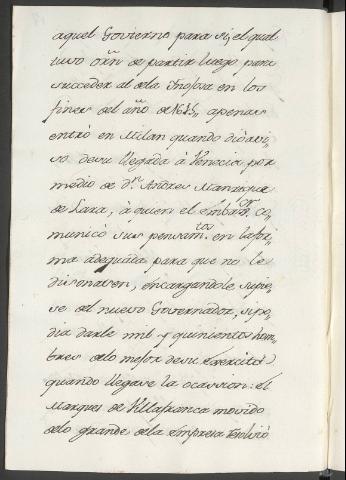 aquel Govierno para sí, el qual
tuvo orn̄ de partir luego para
succeder al de la Inojosa en los
fines del año de 1615, apenas
entró en Milan quando dió avi-
so de su llegada à Venecia por
medio de Dn. Andres Manrique
de Lara, à quien el embaxor. co-
municó sus pensamtos. en la for-
ma adequada para que no le
disonasen, encargandole supie-
se del nuevo Governador, si po-
dia darle mil y quinientos hom-
bres de lo mejor de su exercito
quando llegase la ocassion: el
Marques de Villafranca movido
de lo grande de la empresa